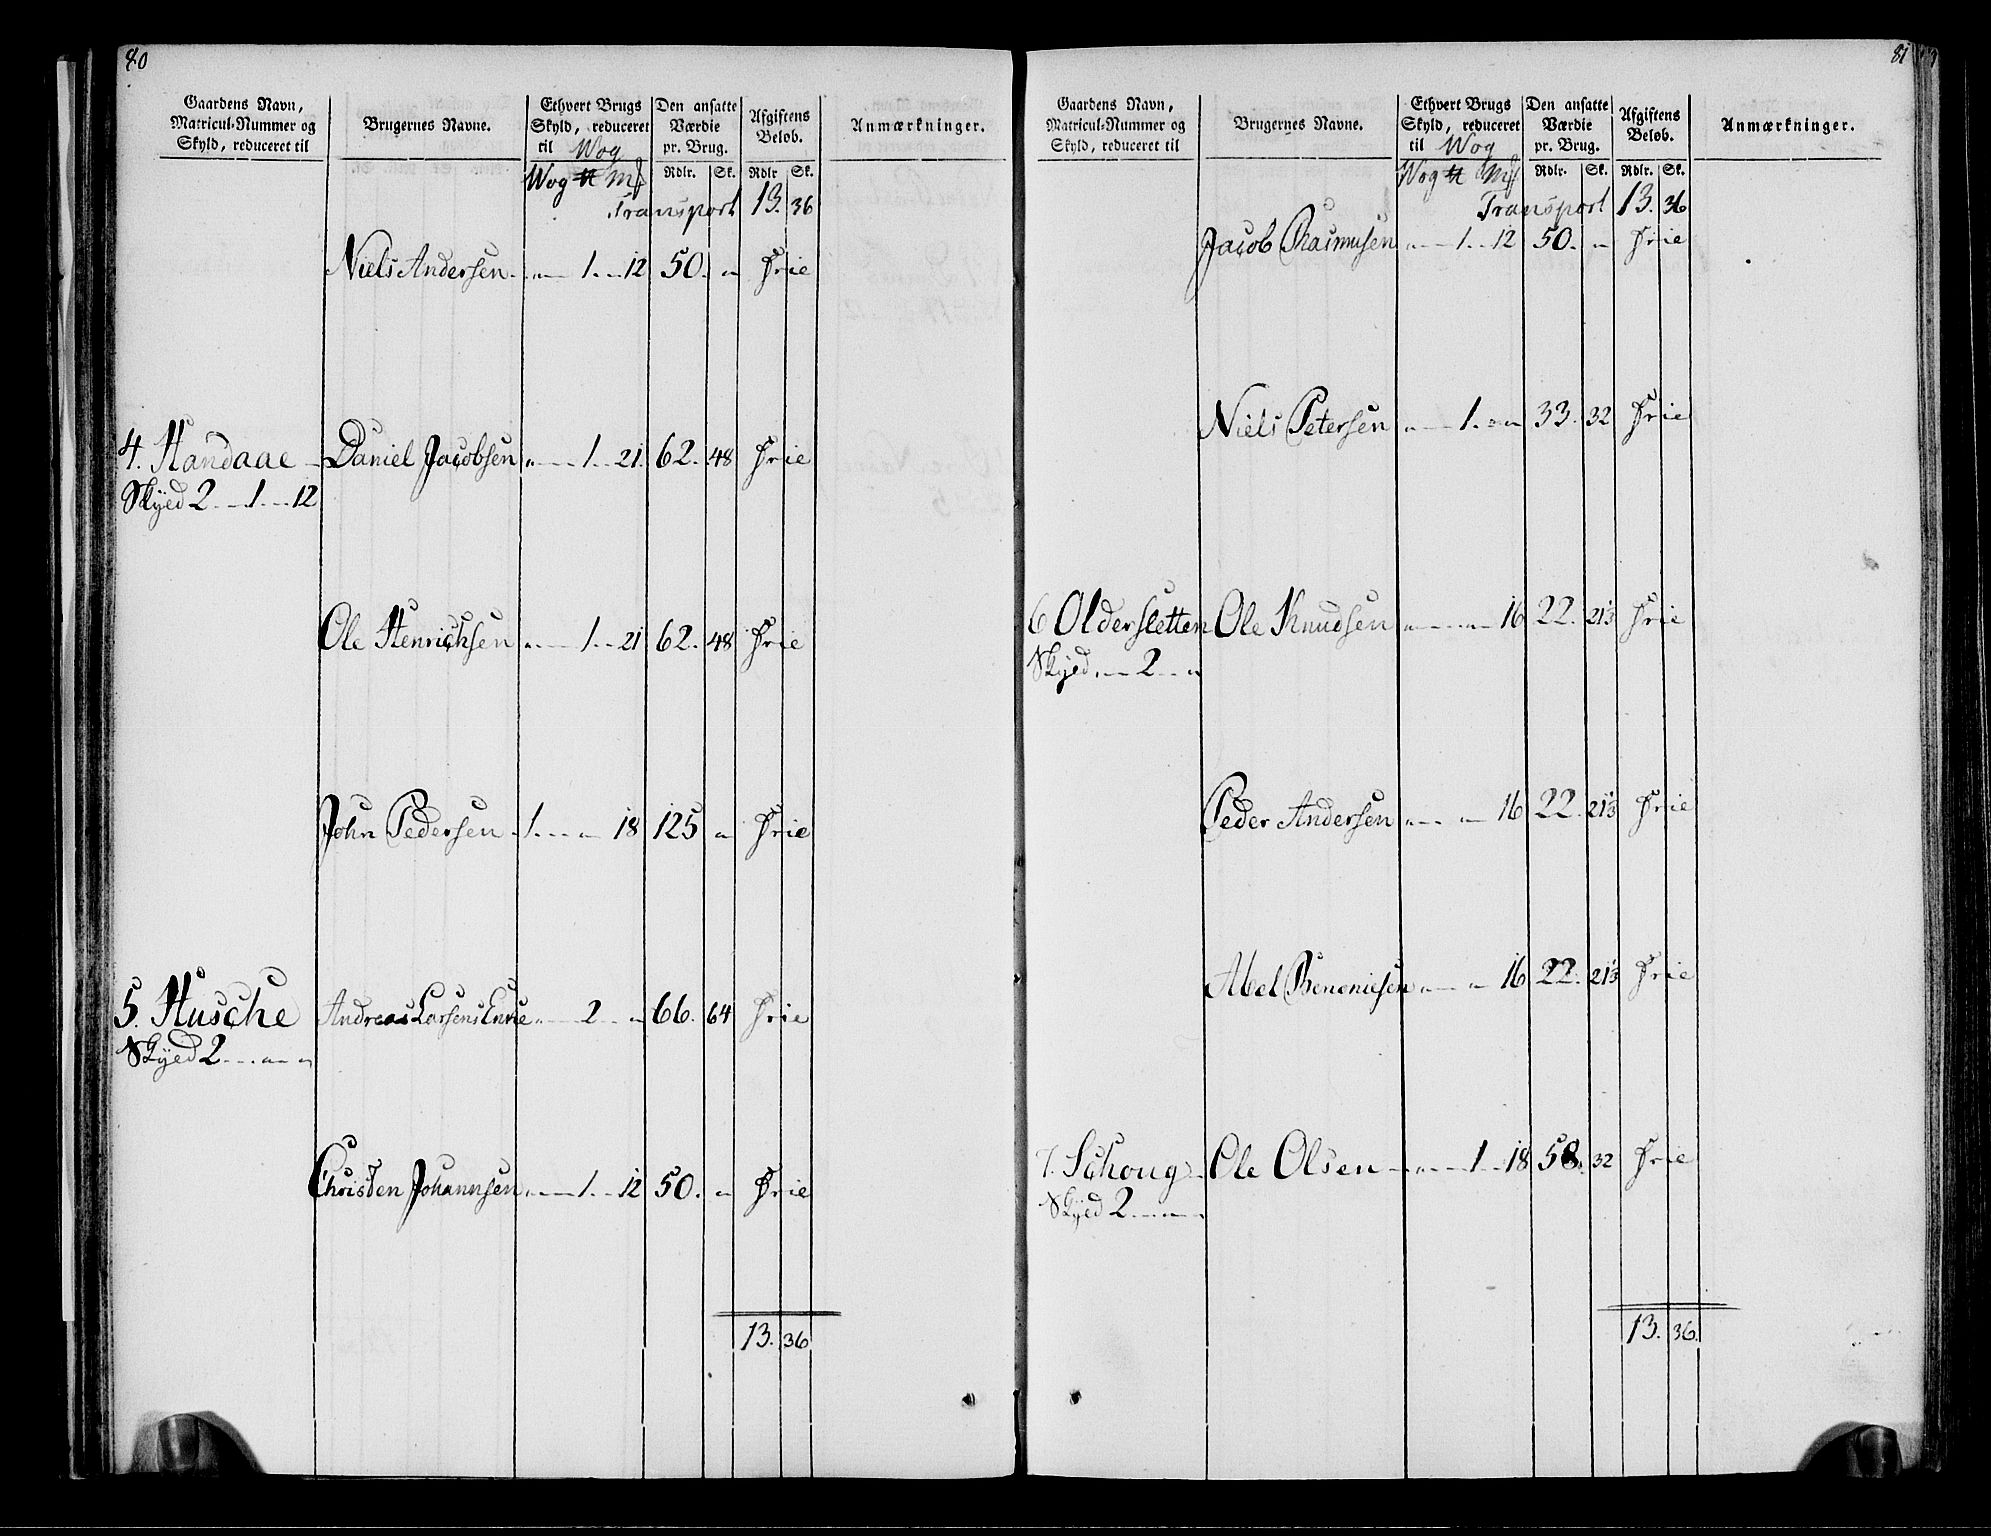 80
Gaardens Navn, Matricul-Nummer og Skyld, reduceret til
Brugernes Navne.
Ethvert Brugs Skyld, reduceret til Wog
Den ansatte Værdie pr. Brug.
Afgiftens Beløb.
Anmærkninger.
Wog ℔ Mℓ Rdlr. Sk. Rdlr Sk.
Transport 13. 36
Niels Andersen 1 12 50. " Frie
4. Handaae Daniel Jacobsen 1 21. 62. 48 Frie
Skyed 2 1 12
Ole Henrichsen 1 21 62. 48 Frie
John Pedersen 1 " 18 125 " Frie
5. Husche Andreas Larsens Enke 2 " 66. 64 Frie
Skyed 2 " "
Christen Johannsen 1 12 50. " Frie
13. 36
81
Gaardens Navn, Matricul-Nummer og Skyld, reduceret til
Brugernes Navne.
Ethvert Brugs Skyld, reduceret til Wog
Den ansatte Værdie pr. Brug.
Afgiftens Beløb.
Anmærkninger.
Wog ℔ Mℓ Rdlr. Sk. Rdlr. Sk.
Transport 13. 36
Jacob Rasmusen 1 12 50. " Frie
Niels Petersen 1 " 33. 32 Frie
6 Oldersletten Ole Knudsen " 16 22. 21⅓ Frie
Skyed " 2 "
Peder Andersen " 16 22. 21⅓ Frie
Abel Benoniesen " 16 22. 21⅓ Frie
7. Schoug Ole Olsen 1 18 58. 32 Frie
Skyed 2 " "
13. 36.